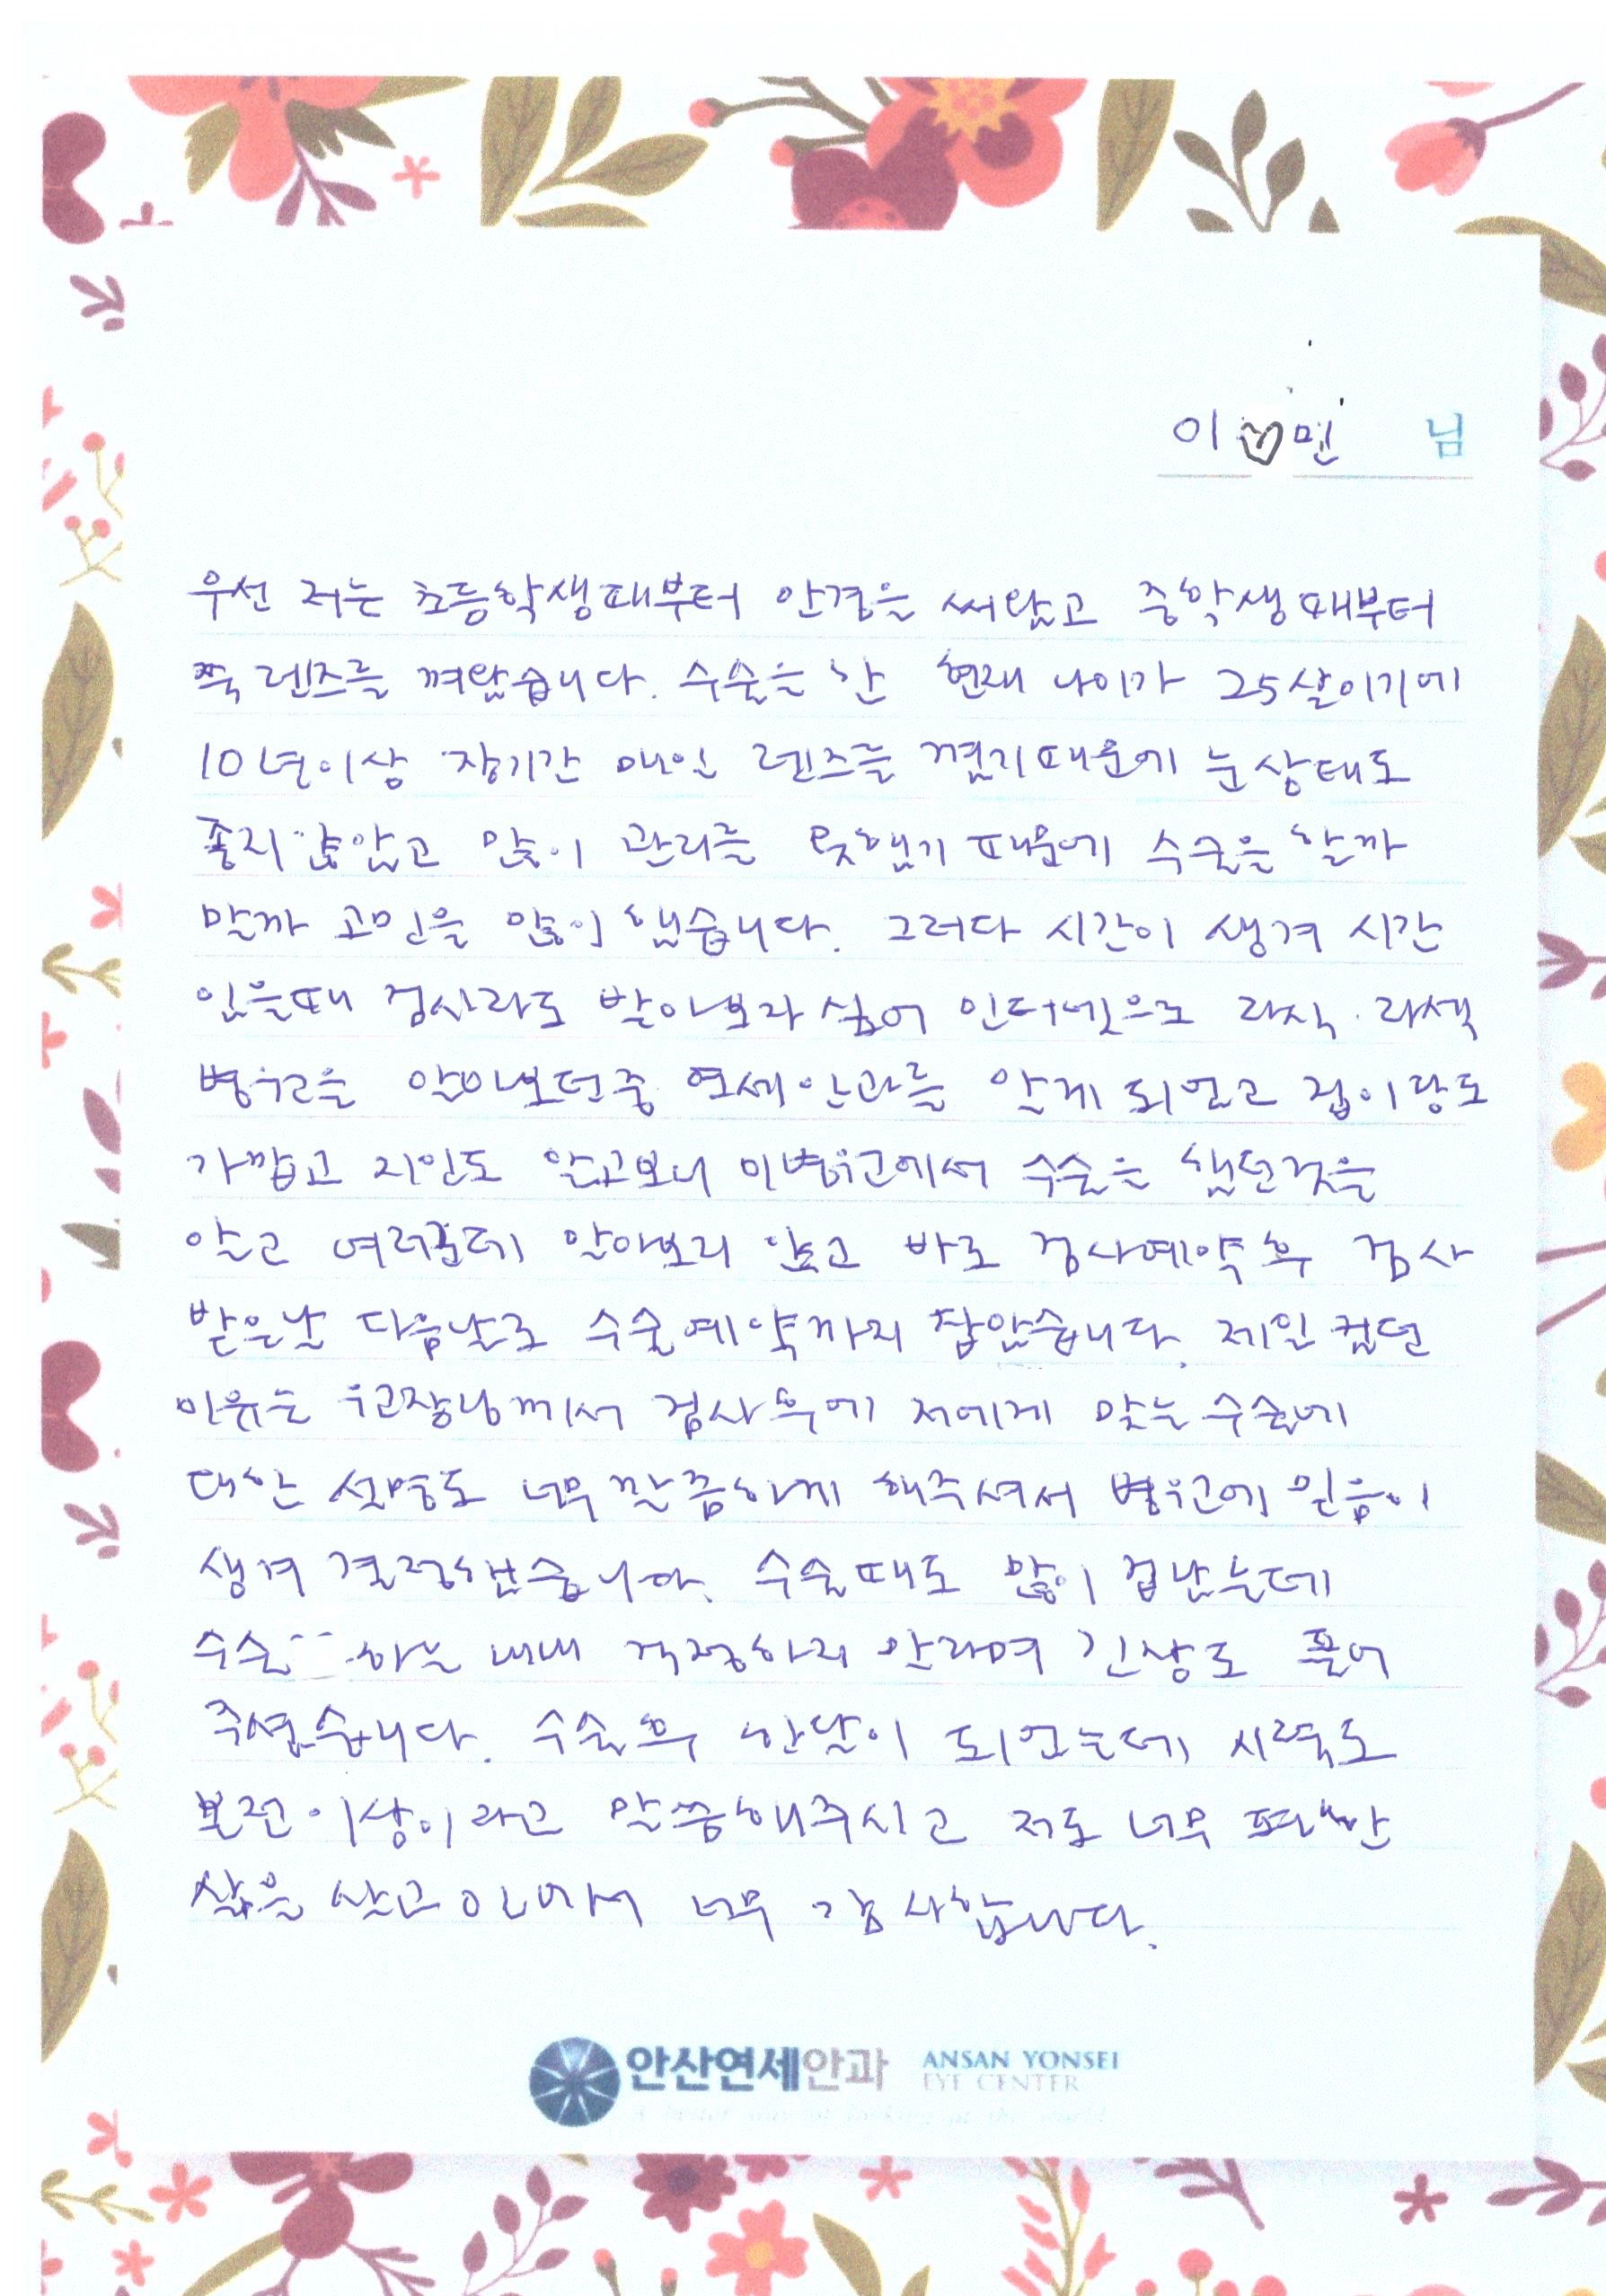 이♡민 님
우선 저는 초등학생때부터 안경을 써왔고 중학생때부터
쭉 렌즈를 껴왔습니다. 수술을 한 현재 나이가 25살이기에
10년이상 장기간 매일 렌즈를 꼈기때문에 눈상태도
좋지않았고 많이 관리를 못했기 때문에 수술을 할까
말까 고민을 많이 했습니다. 그러다 시간이 생겨 시간
있을때 검사라도 받아보자 싶어 인터넷으로 라식·라섹
병원을 알아보던중 연세안과를 알게 되었고 집이랑도
가깝고 지인도 알고보니 이병원에서 수술을 했던것을
알고 여러군데 알아보지 않고 바로 검사예약 후 검사
받은날 다음날로 수술예약까지 잡았습니다. 제일 컸던
이유는 원장님께서 검사후에 저에게 맞는 수술에
대한 설명도 너무 깔끔하게 해주셔서 병원에 믿음이
생겨 결정했습니다. 수술때도 많이 겁났는데
수술 하는 내내 걱정하지 말라며 긴장도 풀어
주셨습니다. 수술후 한달이 되었는데 시력도
보전 이상이라고 말씀해주시고 저도 너무 편한
삶을 살고 있어서 너무 감사합니다.
안산연세안과 ANSAN YONSEI
EYE CENTER